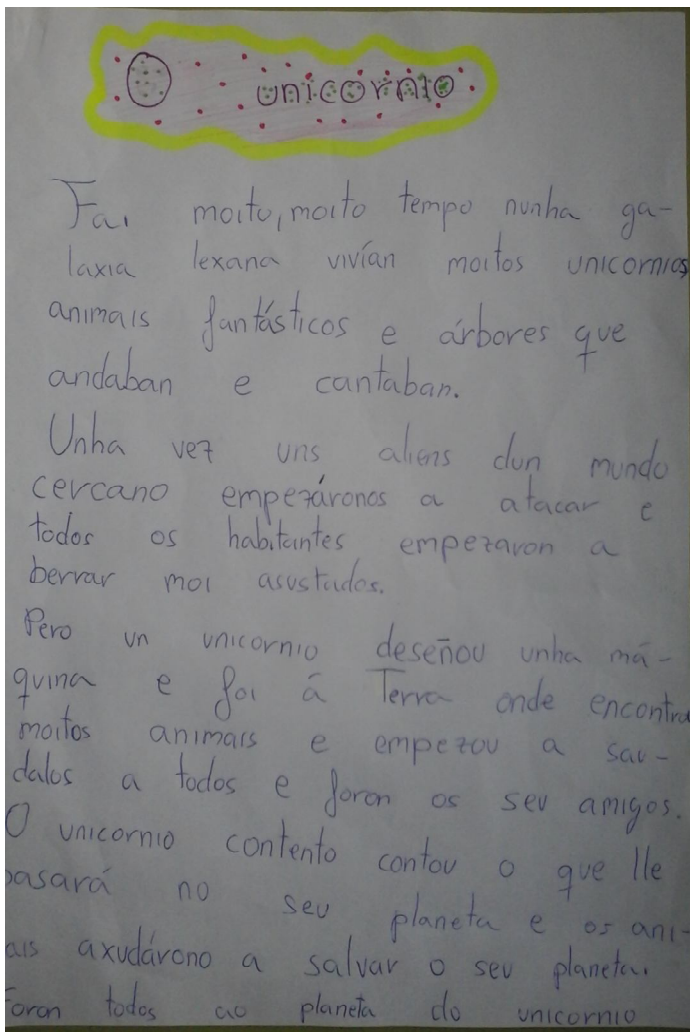 O unicornio
Fai moito, moito tempo nunha ga-
laxia lexana vivían moitos unicornios
animais fantásticos e árbores que
andaban e cantaban.
Unha vez uns aliens dun mundo
cercano empezáronos a atacar e
todos os habitantes empezaron a
berrar moi asustados.
Pero un unicornio deseñou unha má-
quina e foi á Terra onde encontra
moitos animais e empezou a sau-
dalos a todos e foron os seu amigos.
O unicornio contento contou o que lle
pasará no seu planeta e os ani-
ais axudárono a salvar o seu planeta.
Foron todos ao planeta do unicornio